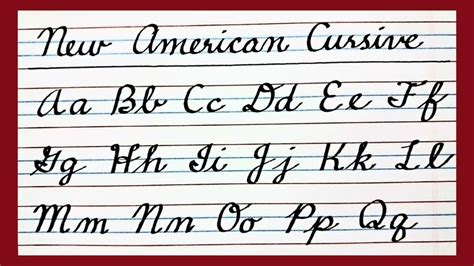 New American Cursive
Aa Bb Cc Dd Ee Ff
Gg Hh Ii Jj Kk Ll
Mm Nn Oo Pp Qq